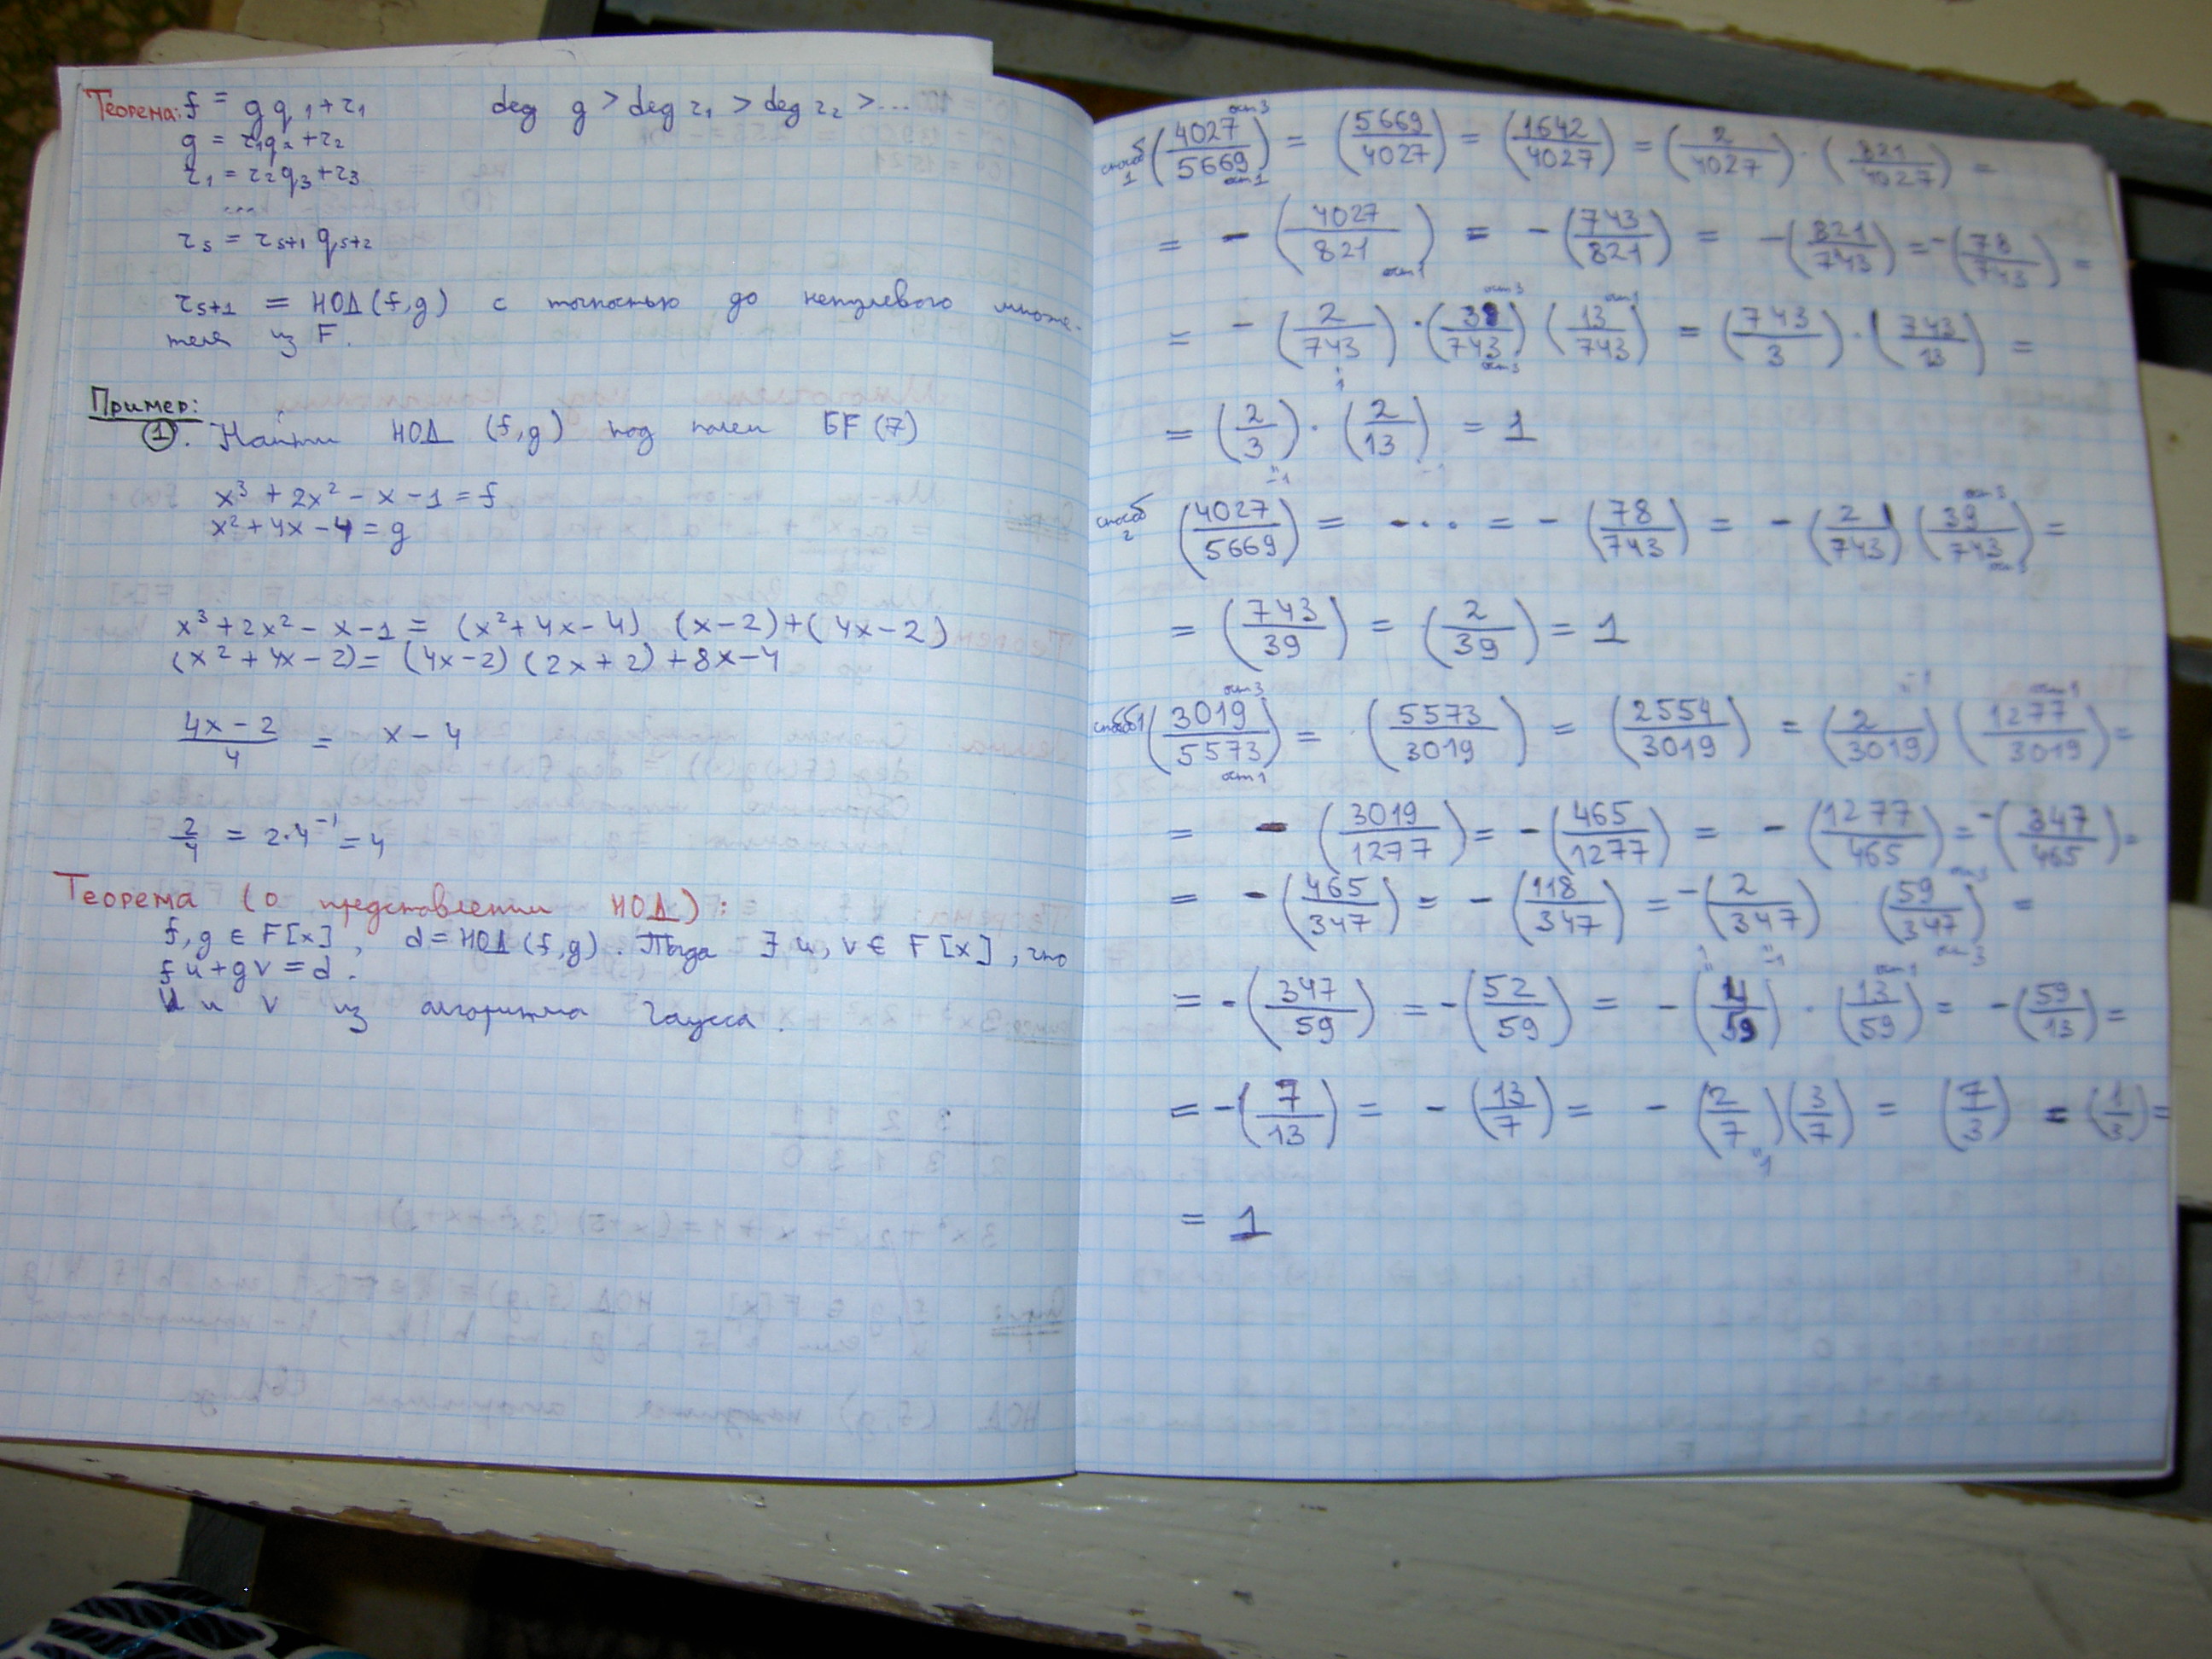 Теорема: f = g q₁ + r₁ deg g > deg r₁ > deg r₂ > ...
g = r₁q₂ + r₂
r₁ = r₂q₃ + r₃
...
r_s = r_{s+1} q_{s+2}
r_{s+1} = НОД(f,g) с точностью до ненулевого множи-
теля из F.
Пример:
①. Найти НОД (f,g) над полем GF(7)
x³ + 2x² - x - 1 = f
x² + 4x - 4 = g
x³ + 2x² - x - 1 = (x² + 4x - 4) (x - 2) + (4x - 2)
(x² + 4x - 2) = (4x - 2) (2x + 2) + 8x - 4
(4x - 2)/4 = x - 4
2/4 = 2·4⁻¹ = 4
Теорема (о представлении НОД):
f, g ∈ F[x], d = НОД(f,g). Тогда ∃ u, v ∈ F[x], что
fu + gv = d.
u и v из алгоритма Гаусса.
способ 1 (4027/5669) ост 3 ост 1 = (5669/4027) = (1642/4027) = (2/4027) · (821/4027) =
= - (4027/821) ост 1 = - (743/821) = - (821/743) = - (78/743) =
= - (2/743) · (3/743) ост 3 ост 3 (13/743) ост 1 = (743/3) · (743/13) =
= (2/3) · (2/13) = 1
способ 2 (4027/5669) = ... = - (78/743) = - (2/743) (39/743) ост 3 ост 3 =
= (743/39) = (2/39) = 1
способ 1 (3019/5573) ост 3 ост 1 = (5573/3019) = (2554/3019) = (2/3019) (1277/3019) ост 1 =
= - (3019/1277) = - (465/1277) = - (1277/465) = - (347/465) =
= - (465/347) = - (118/347) = - (2/347) (59/347) ост 3 ост 3 =
= - (347/59) = - (52/59) = - (4/59) · (13/59) ост 1 = - (59/13) =
= - (7/13) = - (13/7) = - (2/7) (3/7) = (7/3) = (1/3) =
= 1